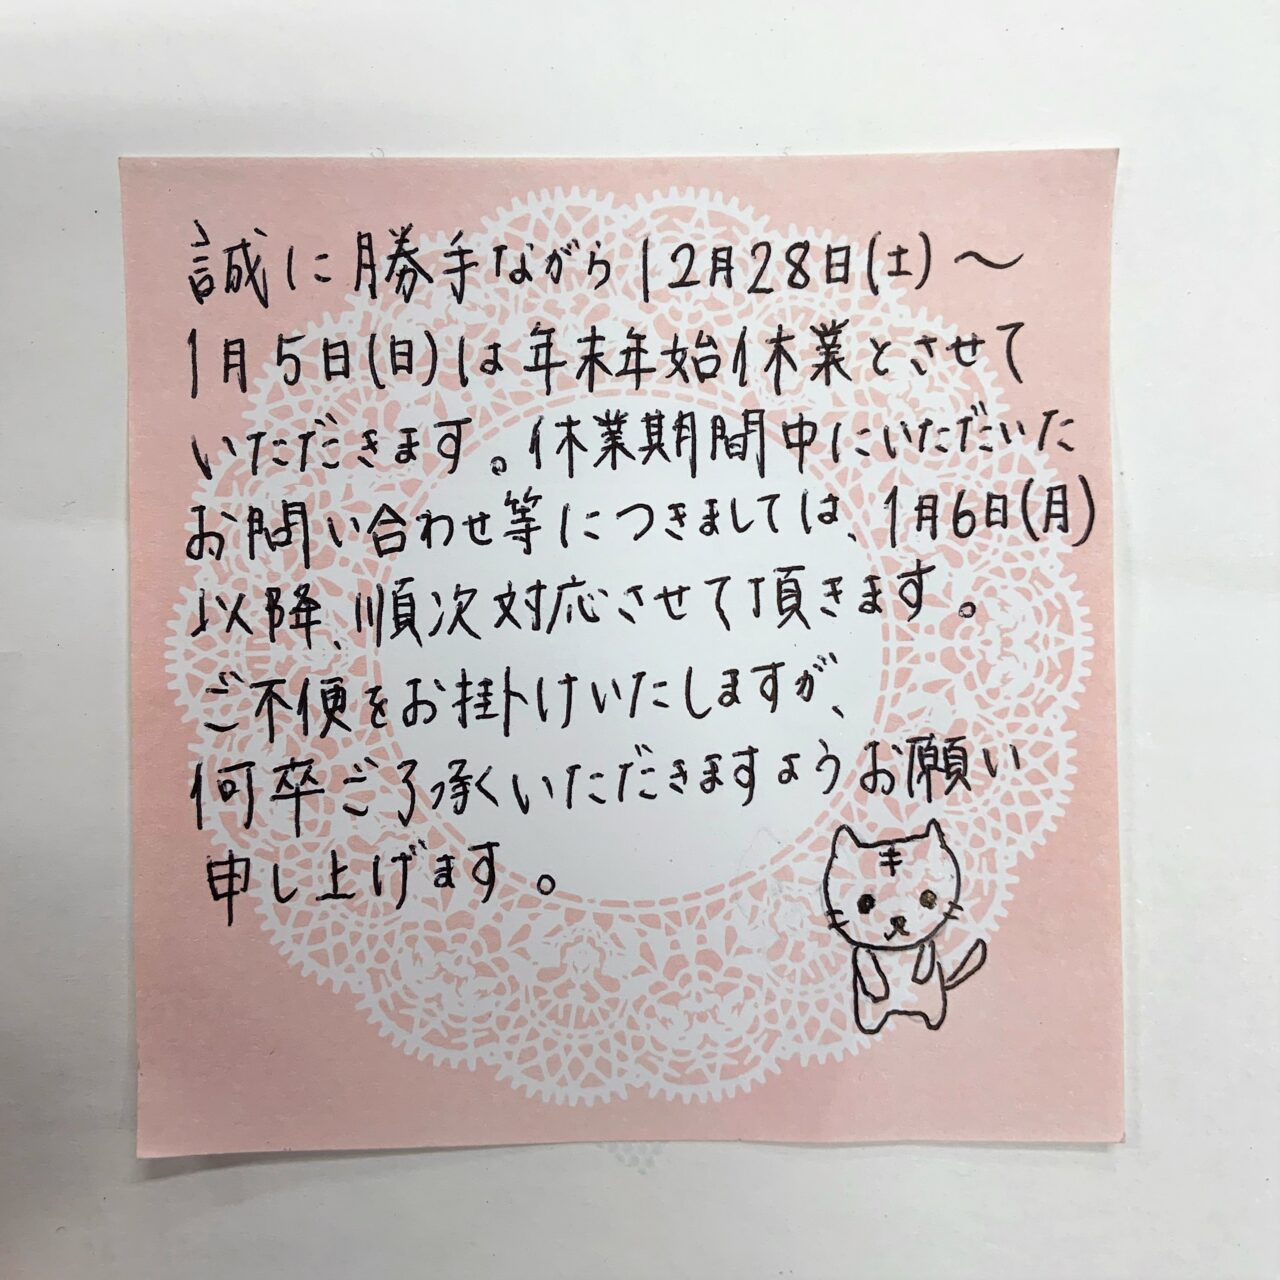 誠に勝手ながら12月28日(土)～
1月5日(日)は年末年始休業とさせて
いただきます。休業期間中にいただいた
お問い合わせ等につきましては、1月6日(月)
以降、順次対応させて頂きます。
ご不便をお掛けいたしますが、
何卒ご了承くいただきますようお願い
申し上げます。